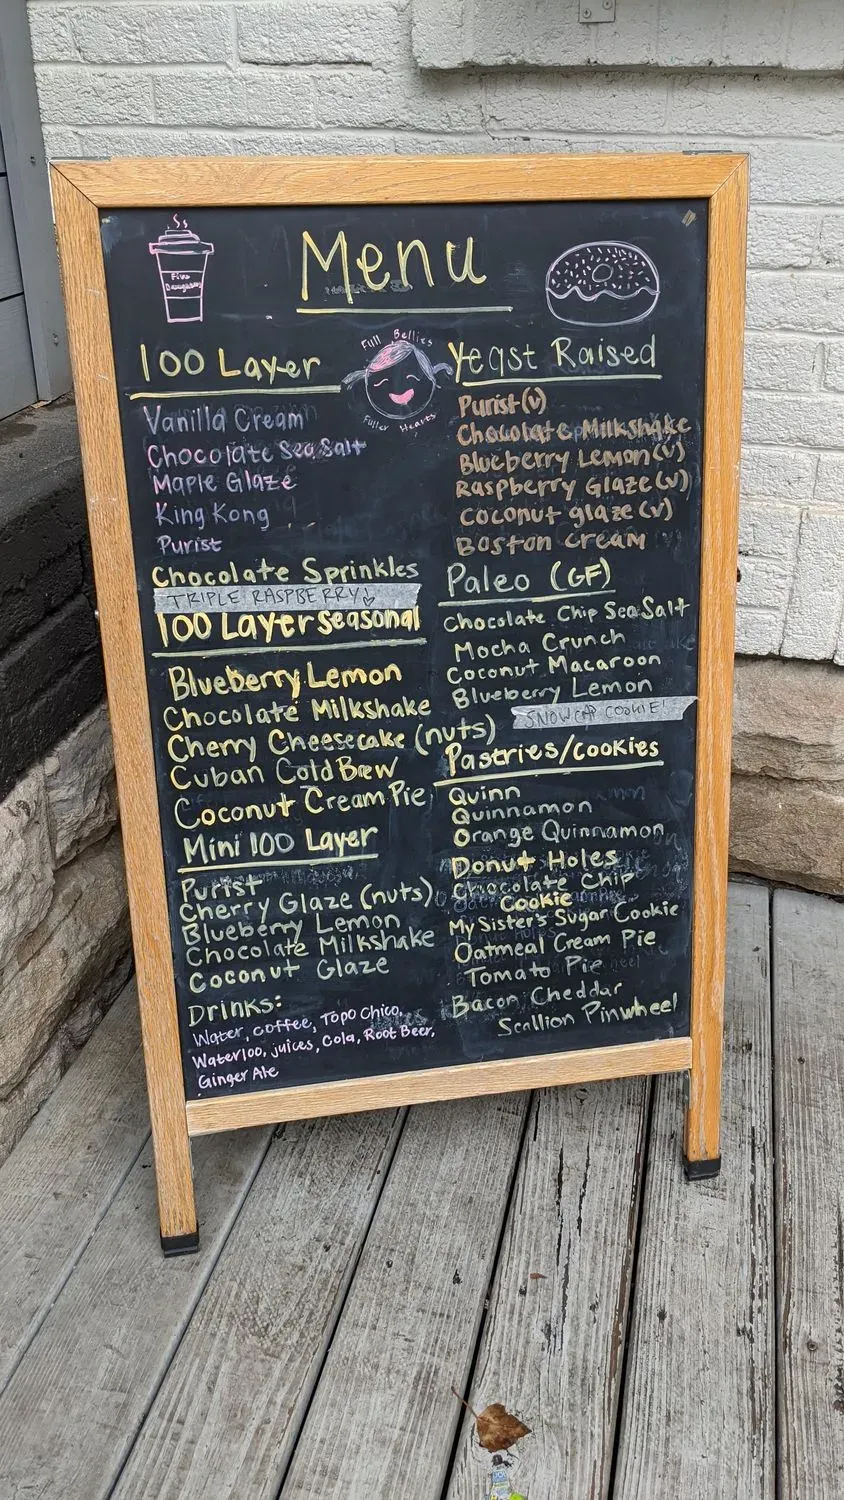 Menu
Five
Daughters
Full Bellies
Fuller Hearts
100 Layer
Vanilla Cream
Chocolate Sea Salt
Maple Glaze
King Kong
Purist
Chocolate Sprinkles
TRIPLE RASPBERRY!
100 Layer seasonal
Blueberry Lemon
Chocolate Milkshake
Cherry Cheesecake (nuts)
Cuban Cold Brew
Coconut Cream Pie
Mini 100 Layer
Purist
Cherry Glaze (nuts)
Blueberry Lemon
Chocolate Milkshake
Coconut Glaze
Drinks:
Water, coffee, Topo Chico,
Waterloo, juices, Cola, Root Beer,
Ginger Ale
Yeast Raised
Purist (v)
Chocolate Milkshake
Blueberry Lemon (v)
Raspberry Glaze (v)
Coconut glaze (v)
Boston Cream
Paleo (GF)
Chocolate Chip Sea Salt
Mocha Crunch
Coconut Macaroon
Blueberry Lemon
SNOWCAP COOKIE!
Pastries/cookies
Quinn
Quinnamon
Orange Quinnamon
Donut Holes
Chocolate Chip
Cookie
My Sister's Sugar Cookie
Oatmeal Cream Pie
Tomato Pie
Bacon Cheddar
Scallion Pinwheel